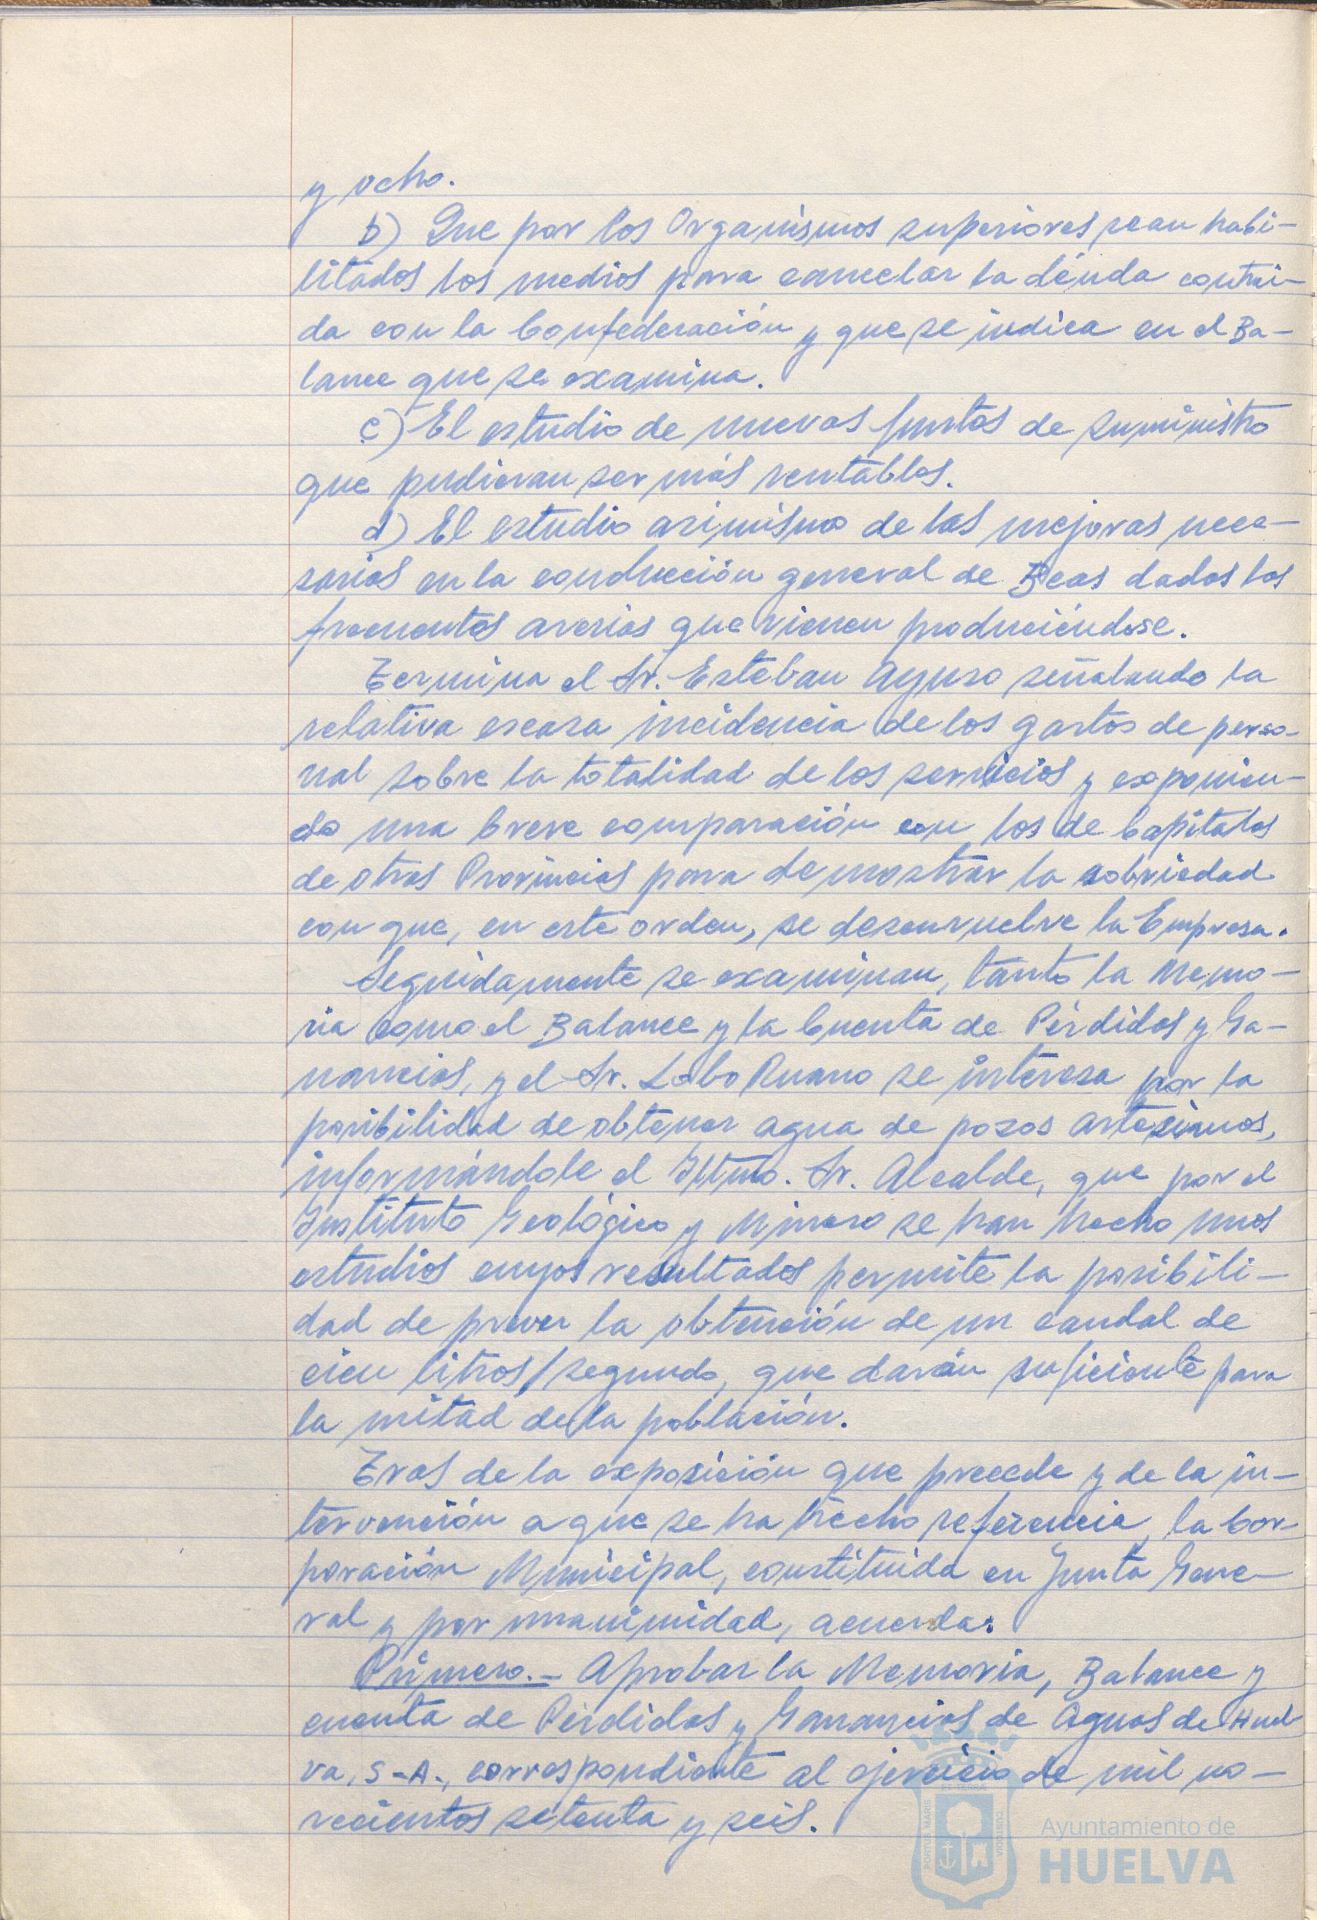 y ocho.
b) Que por los Organismos superiores sean habi-
litados los medios para cancelar la deuda contrai-
da con la Confederación y que se indica en el Ba-
lance que se examina.
c) El estudio de nuevas fuentes de suministro
que pudieran ser más rentables.
d) El estudio asimismo de las mejoras nece-
sarias en la conducción general de Beas dados los
frecuentes averias que vienen produciéndose.
Termina el Sr. Esteban Ayuso señalando la
relativa escasa incidencia de los gastos de perso-
nal sobre la totalidad de los servicios y exponien-
do una breve comparación con los de Capitales
de otras Provincias para demostrar la sobriedad
con que, en este orden, se desenvuelve la Empresa.
Seguidamente se examinan, tanto la Memo-
ria como el Balance y la Cuenta de Pérdidas y Ga-
nancias, y el Sr. Lobo Ruano se interesa por la
posibilidad de obtener agua de pozos artesianos,
informándole el Iltmo. Sr. Alcalde, que por el
Instituto Geológico y Minero se han hecho unos
estudios cuyos resultados permite la posibili-
dad de prever la obtención de un caudal de
cien litros/segundo, que darán suficiente para
la mitad de la población.
Tras de la exposición que precede y de la in-
tervención a que se ha hecho referencia, la Cor-
poración Municipal, constituida en Junta Gene-
ral y por unanimidad, acuerda:
Primero.- Aprobar la Memoria, Balance y
cuenta de Pérdidas y Ganancias de Aguas de Huel-
va, S-A-, correspondiente al ejercicio de mil no-
vecientos setenta y seis.
PORTUS MARIS
ET TERRAE
CUSTODIA
Ayuntamiento de
HUELVA